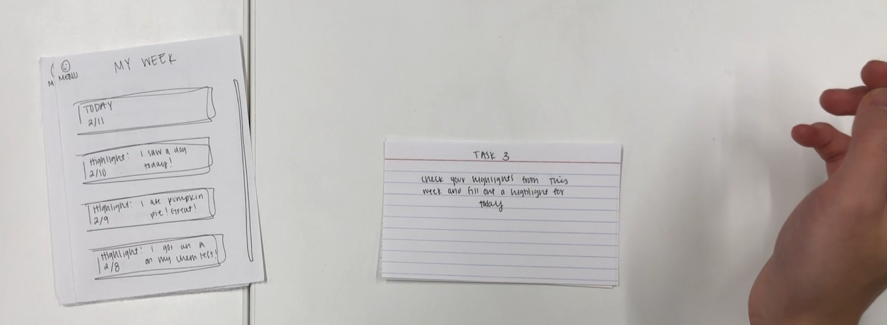 MENU
MY WEEK
TODAY
2/11
Highlight: I saw a dog
2/10 today!
Highlight: I ate pumpkin
2/9 pie! Great!
Highlight: I got an A
2/8 on my chem test!
TASK 3
Check your highlights from this
week and fill out a highlight for
today